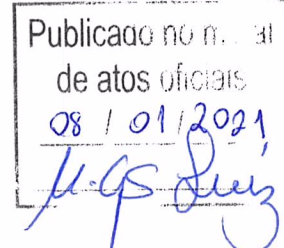 Publicado no
de atos oficiais
08 / 01 / 2021